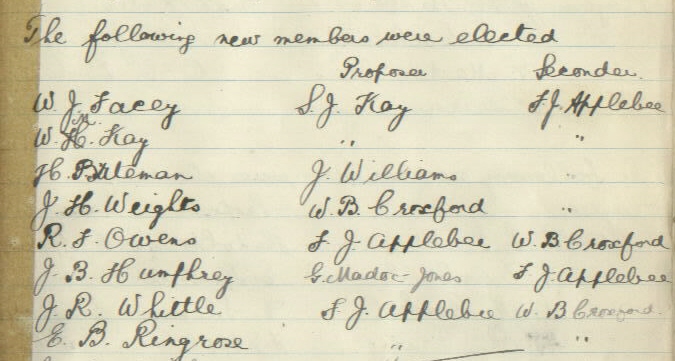 The following new members were elected
Proposer Seconder
W. J. Facey S. J. Kay F. J. Applebee
W. H. Kay " "
H. Bateman J. Williams "
J. H. Weights W. B. Croxford "
R. F. Owens F. J. Applebee W. B Croxford
J. B. Humphrey G. Madoc-Jones F. J. Applebee
J. R. Whittle F. J. Applebee W. B Croxford.
E. B. Ringrose " "